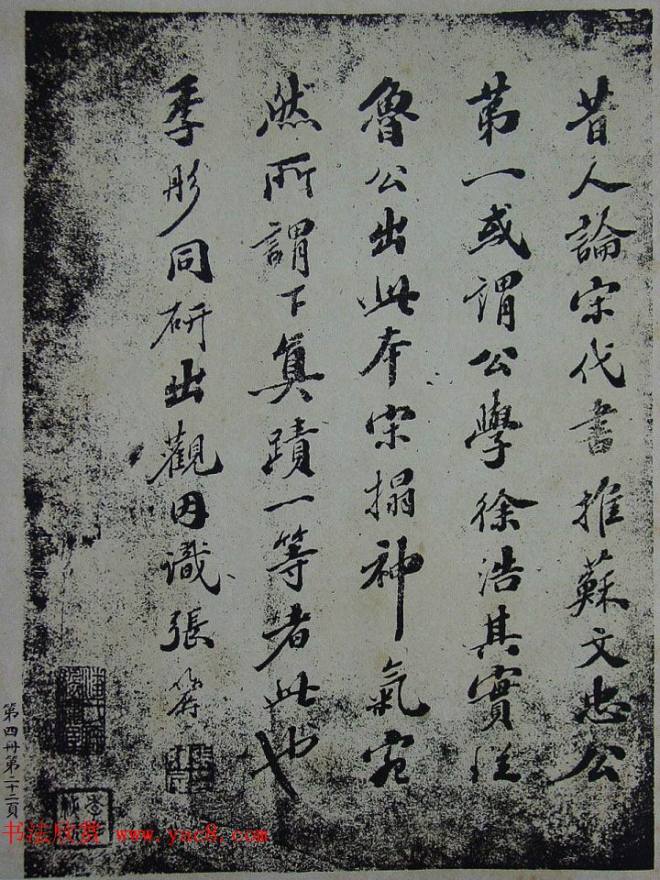 昔人論宋代書推蘇文忠公
第一或謂公學徐浩其實從
魯公出此本宋搨神氣宛
然所謂下真蹟一等者此也
季彤同研出觀因識張
第四冊第二十二頁
书法欣赏 www.yac8.com